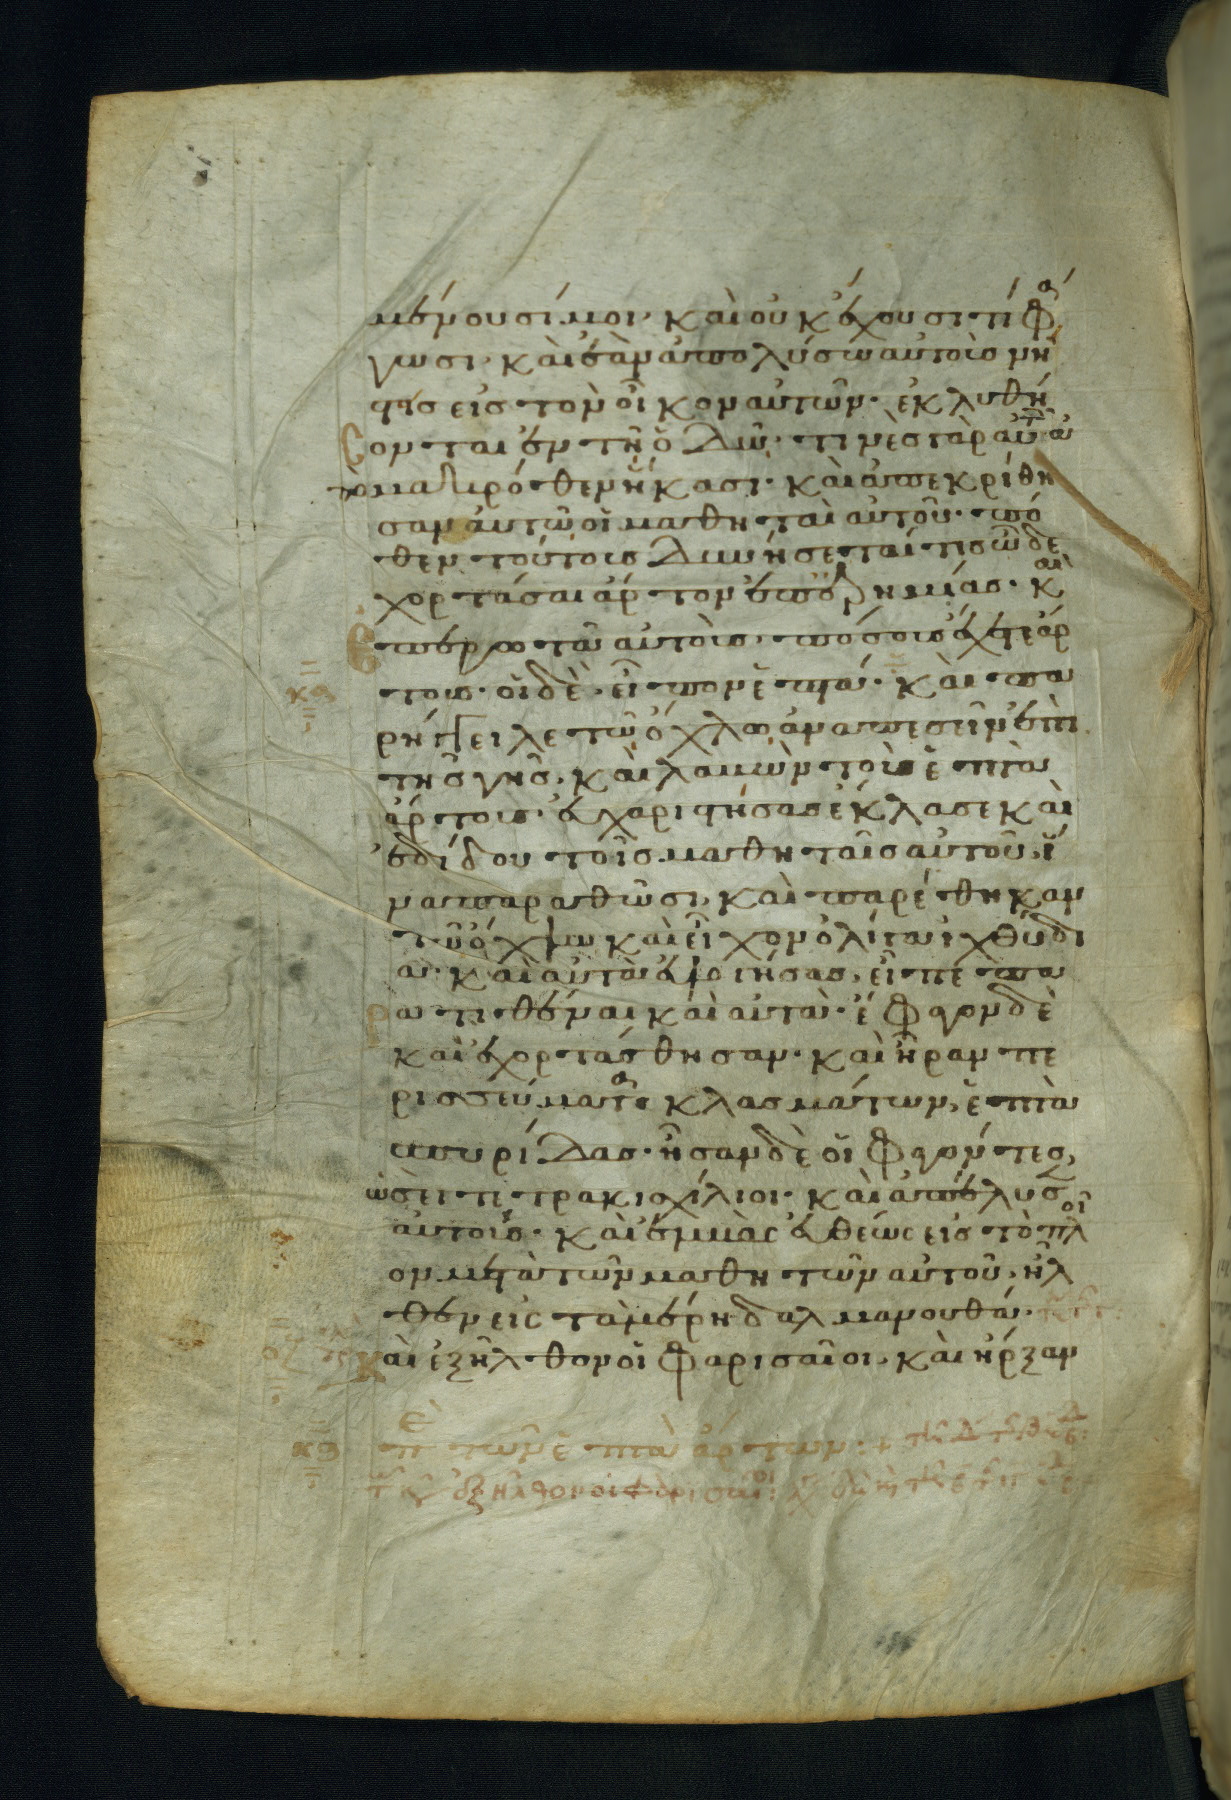 μένουσί μοι· καὶ οὐκ ἔχουσι τί φά
γωσι· καὶ ἐὰν ἀπολύσω αὐτοὺς νή
στεις εἰς τὸν οἶκον αὐτῶν· ἐκλυθή
σονται ἐν τῇ ὁδῷ· τινὲς γὰρ αὐτῶν
μακρόθεν ἥκασι· καὶ ἀπεκρίθη
σαν αὐτῷ οἱ μαθηταὶ αὐτοῦ· πό
θεν τούτους δυνήσεταί τις ὧδε
χορτάσαι ἄρτων ἐπ' ἐρημίας· καὶ
ἐπηρώτα αὐτούς· πόσους ἔχετε ἄρ
τους· οἱ δὲ εἶπον ἑπτά· καὶ πα
ρήγγειλε τῷ ὄχλῳ ἀναπεσεῖν ἐπὶ
τῆς γῆς· καὶ λαβὼν τοὺς ἑπτὰ
ἄρτους· εὐχαριστήσας ἔκλασε καὶ
ἐδίδου τοῖς μαθηταῖς αὐτοῦ, ἵ
να παραθῶσι· καὶ παρέθηκαν
τῷ ὄχλῳ καὶ εἶχον ὀλίγα ἰχθύδι
α· καὶ αὐτὰ εὐλογήσας, εἶπε πα
ρατιθέναι καὶ αὐτά· ἔφαγον δὲ
καὶ ἐχορτάσθησαν· καὶ ἦραν πε
ρισσεύματα κλασμάτων, ἑπτὰ
σπυρίδας· ἦσαν δὲ οἱ φαγόντες,
ὡσεὶ τετρακισχίλιοι· καὶ ἀπέλυσεν
αὐτούς· καὶ ἐμβὰς εὐθέως εἰς τὸ πλοῖ
ον μετὰ τῶν μαθητῶν αὐτοῦ· ἦλ
θεν εἰς τὰ μέρη δαλμανουθά·
καὶ ἐξῆλθον οἱ φαρισαῖοι· καὶ ἤρξαν
τῶν ἑπτὰ ἄρτων:
ἐξῆλθον οἱ φαρισαῖοι: